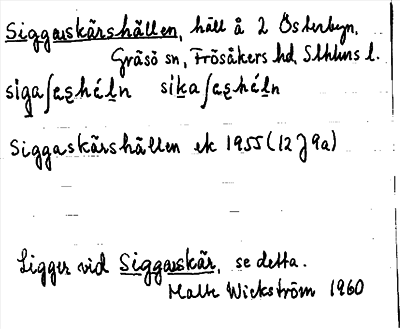 Siggaskärshällen, häll å 2 Österbyn,
Gräsö sn, Frösåkers hd, Sthlms l.
Siggaskärshällen ek 1955 (12 J 9a)
Ligger vid Siggaskär, se detta.
Malte Wickström 1960